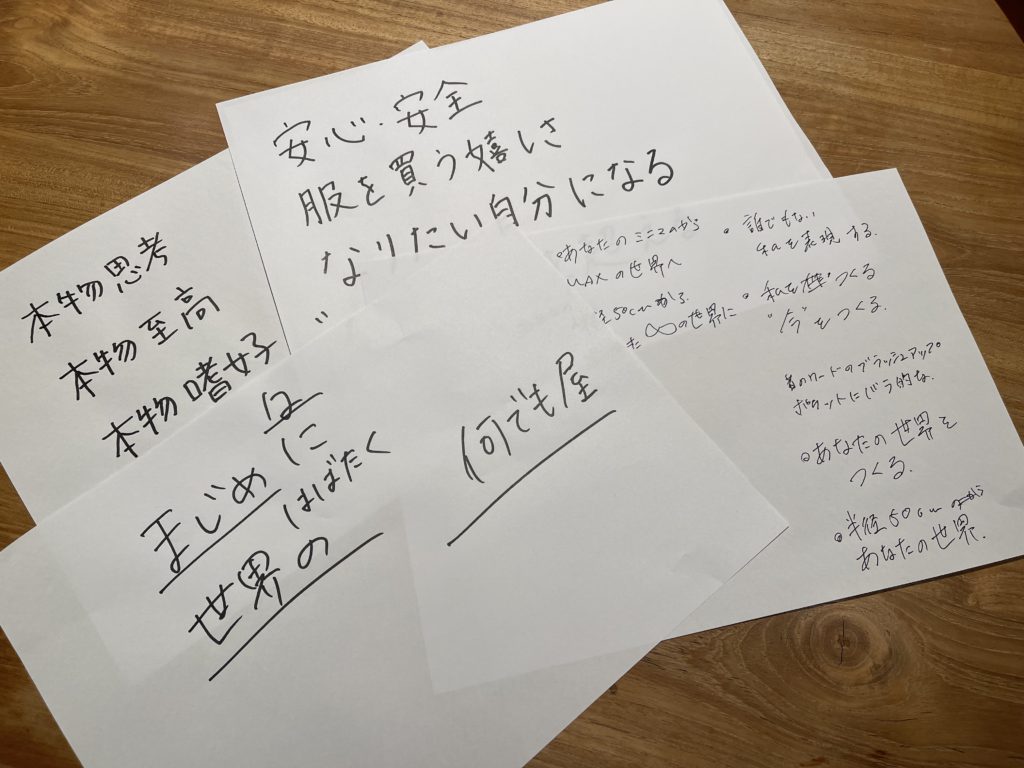 安心・安全
服を買う嬉しさ
なりたい自分になる
本物思考
本物至高
本物嗜好
まじめに
はばたく
世界の
何でも屋
あなたのミニマムから
MAXの世界へ
径50cmから
∞の世界に
誰でもない
私を表現する。
つくる
"今"をつくる.
ワードのブラッシュアップ。
あなたの世界を
つくる.
半径50cmから
あなたの世界.